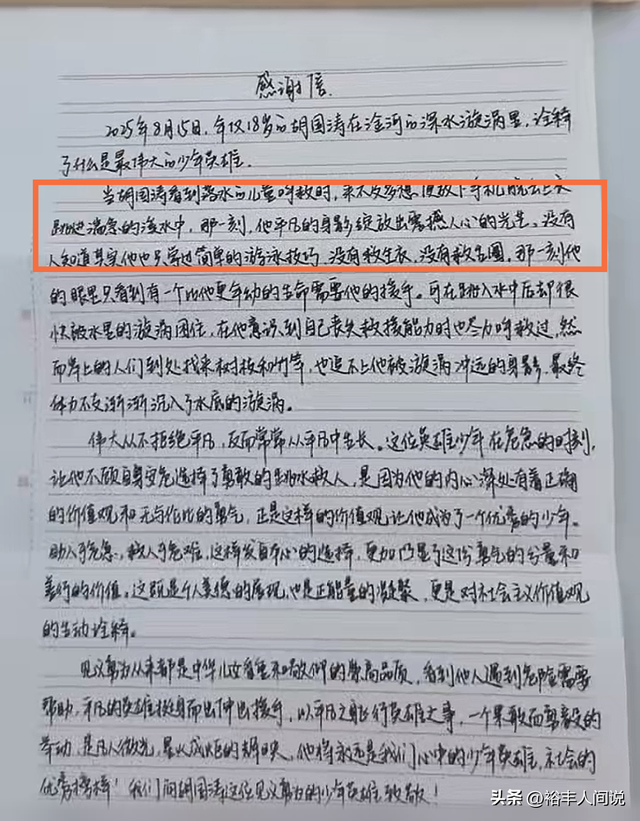 感谢信
2025年8月15日，年仅18岁的胡国涛在淦河的深水漩涡里，诠释
了什么是最伟大的少年英雄。
当胡国涛看到落水的儿童呼救时，来不及多想，便放下手机脱去上衣
跳进湍急的深水中，那一刻，他平凡的身影绽放出震撼人心的光芒。没有
人知道其实他也只学过简单的游泳技巧，没有救生衣，没有救生圈。那一刻他
的眼里只看到有一个比他更年幼的生命需要他的援手。可在跳入水中后却很
快被水里的漩涡困住，在他意识到自己丧失救援能力时也尽力呼救过，然
而岸上的人们到处找来树枝和竹竿，也追不上他被漩涡冲远的身影，最终
体力不支渐渐沉入了水底的漩涡。
伟大从不拒绝平凡，反而常常从平凡中生长。这位英雄少年在危急的时刻，
让他不顾自身安危选择了勇敢的跳水救人，是因为他的内心深处有着正确
的价值观和无与伦比的勇气，正是这样的价值观让他成为了一个优秀的少年。
助人于危急，救人于危难，这样发自本心的选择，更加凸显了这份勇气的分量和
善行的价值。这既是个人美德的展现，也是正能量的凝聚，更是对社会主义价值观
的生动诠释。
见义勇为从来都是中华儿女看重和敬仰的崇高品质，看到他人遇到危险需要
帮助，平凡的英雄挺身而出伸出援手，以平凡之躯行英雄之事，一个果敢而勇毅的
举动，是凡人微光，星火成炬的辉映。他将永远是我们心中的少年英雄，社会的
优秀榜样！我们向胡国涛这位见义勇为的少年英雄致敬！
头条 @裕丰人间说